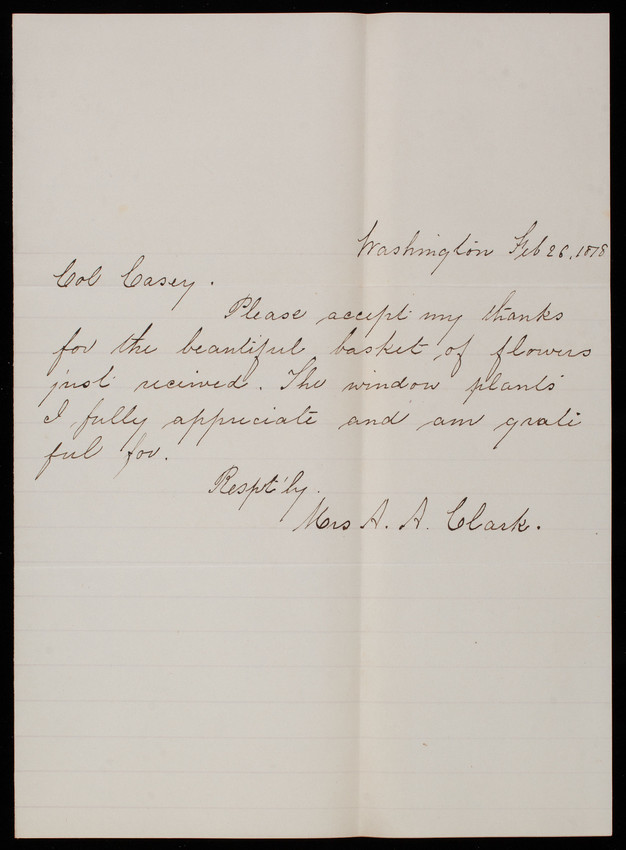 Washington Feb 26, 1878
Col Casey.
Please accept my thanks
for the beautiful basket of flowers
just received. The window plants
I fully appreciate and am grate
ful for.
Respt'ly.
Mrs A. A. Clark.